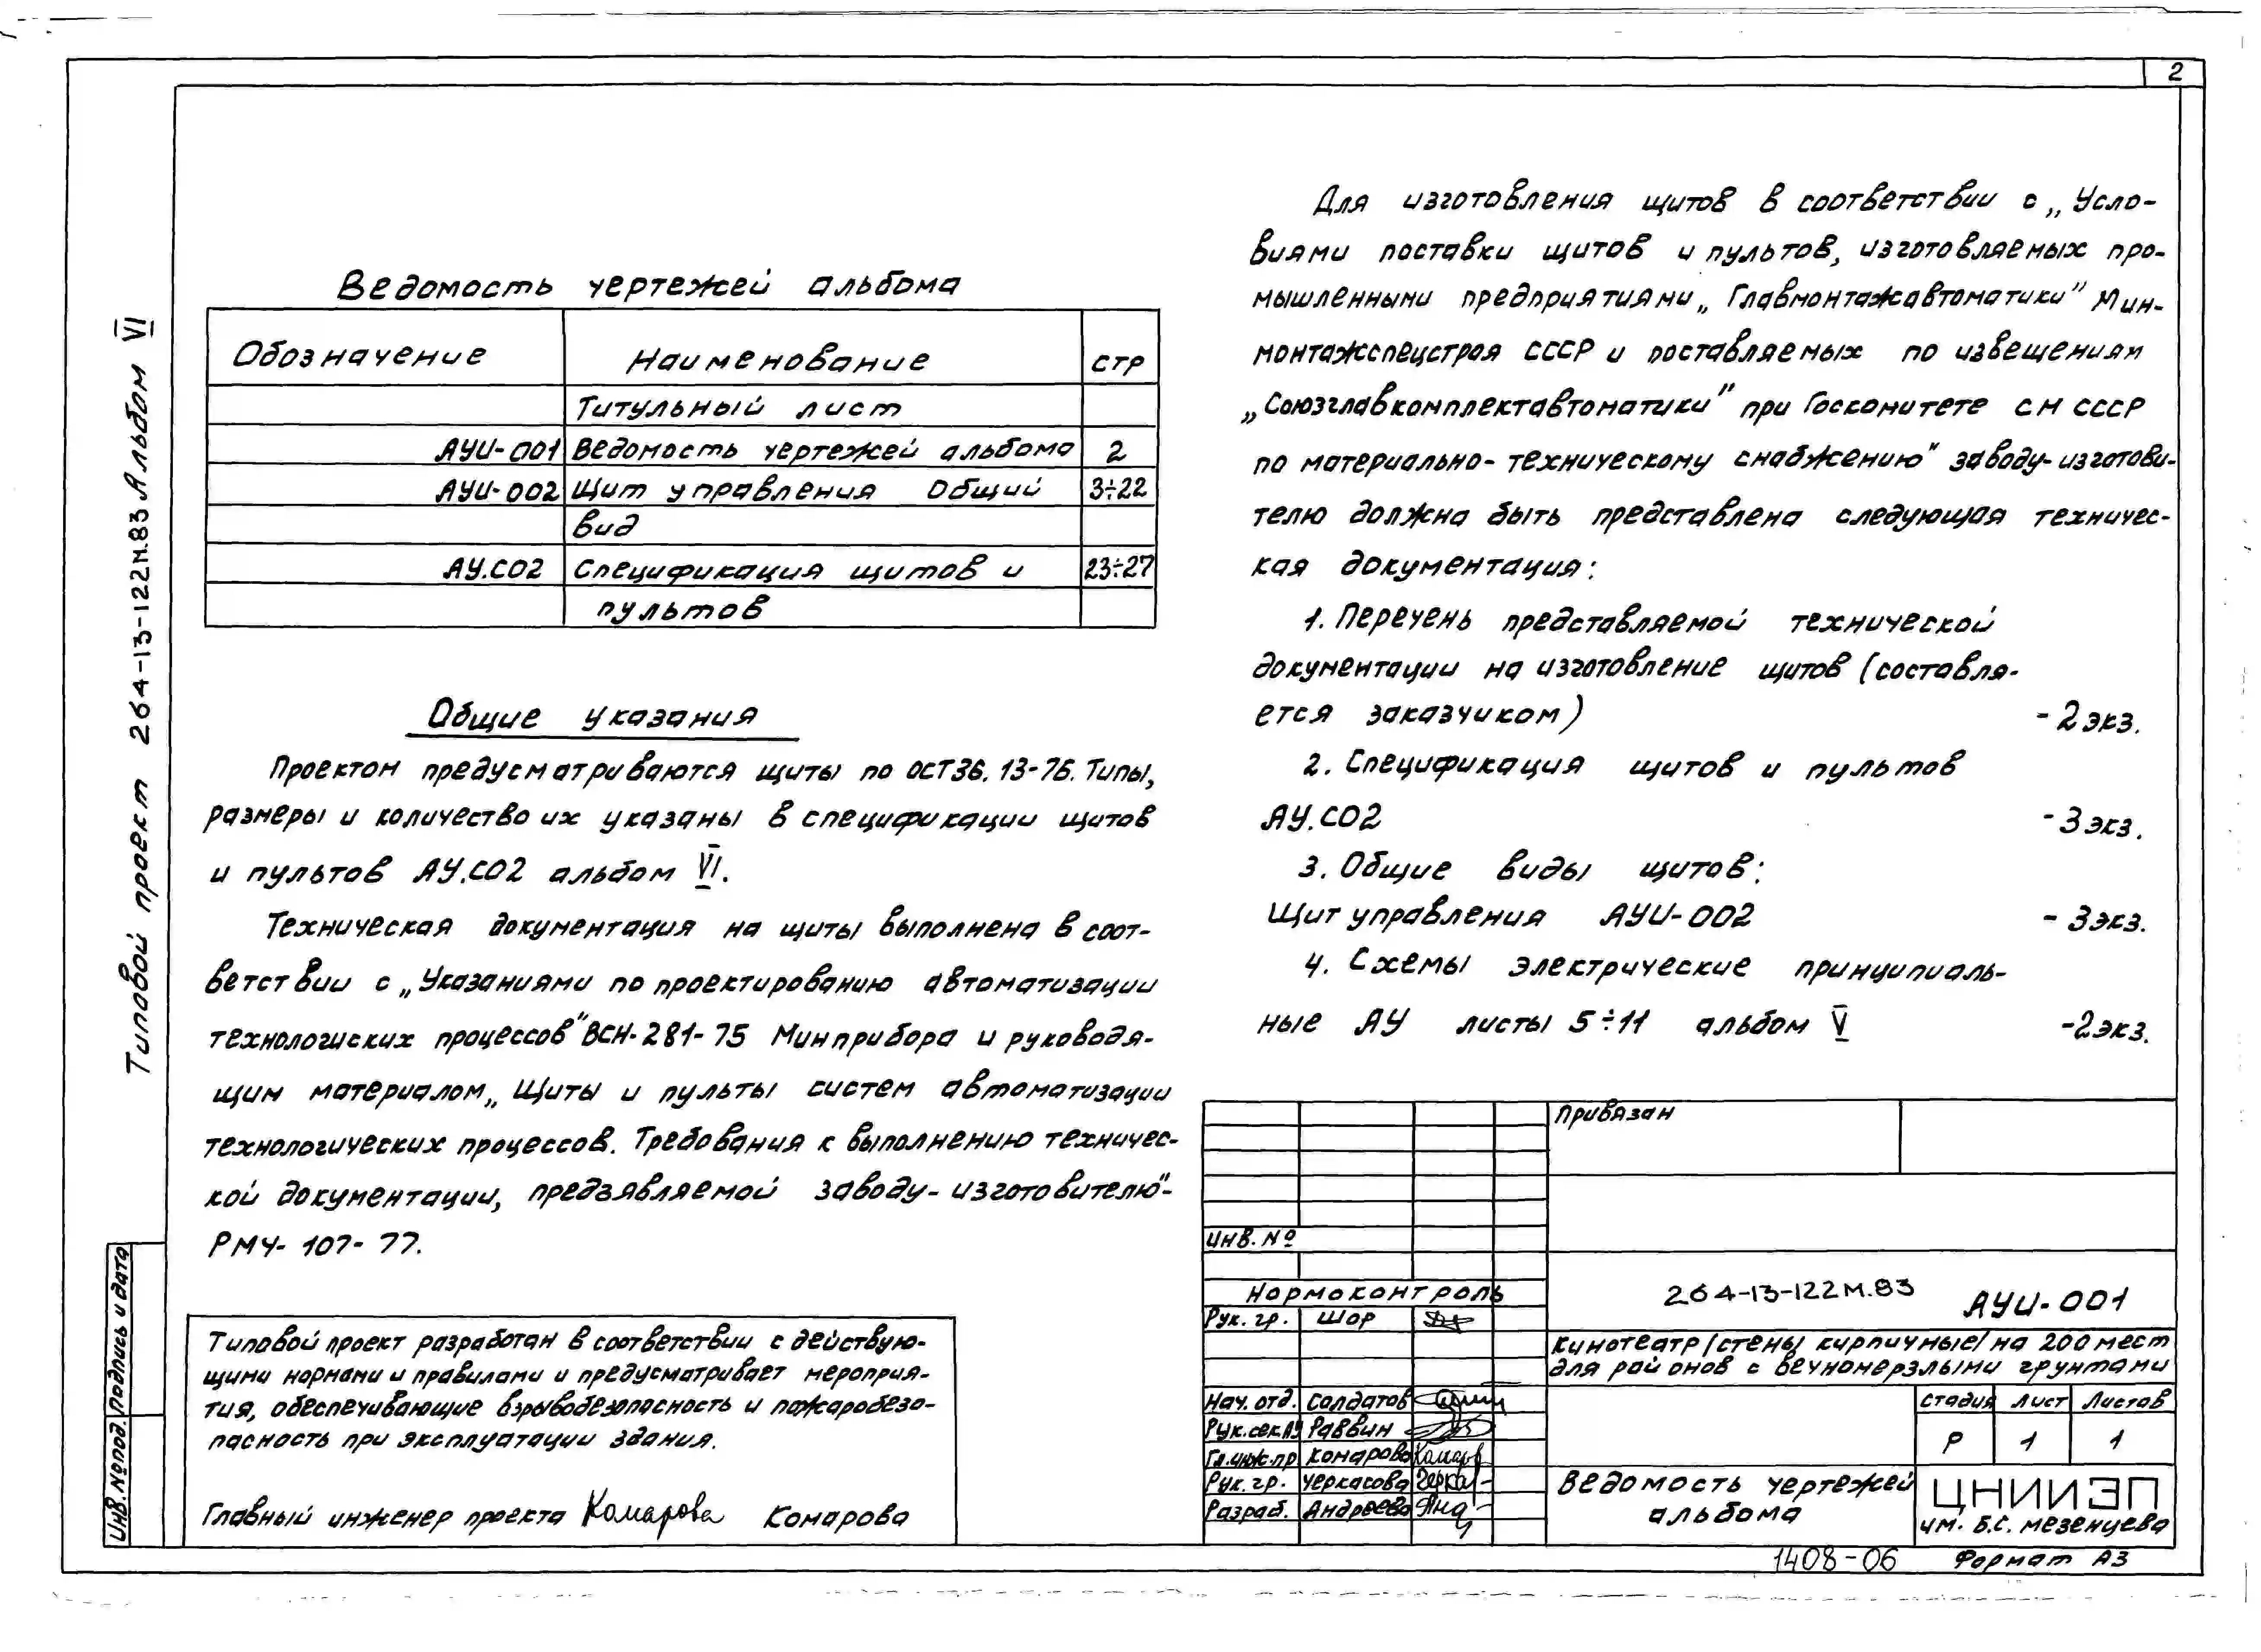 2
Типовой проект 264-13-122м.83 Альбом VI
Ведомость чертежей альбома
Обозначение Наименование стр
Титульный лист
АУИ-001 Ведомость чертежей альбома 2
АУИ-002 Щит управления Общий 3÷22
вид
АУ.СО2 Спецификация щитов и 23÷27
пультов
Общие указания
Проектом предусматриваются щиты по ОСТ36.13-76. Типы,
размеры и количество их указаны в спецификации щитов
и пультов АУ.СО2 альбом VI.
Техническая документация на щиты выполнена в соот-
ветствии с „Указаниями по проектированию автоматизации
технологиских процессов" ВСН-281-75 Минприбора и руководя-
щим материалом „Щиты и пульты систем автоматизации
технологических процессов. Требования к выполнению техничес-
кой документации, предъявляемой заводу-изготовителю"-
РМЧ-107-77.
Типовой проект разработан в соответствии с действую-
щими нормами и правилами и предусматривает мероприя-
тия, обеспечивающие взрывобезопасность и пожаробезо-
пасность при эксплуатации здания.
Главный инженер проекта Комарова Комарова
Для изготовления щитов в соответствии с „Усло-
виями поставки щитов и пультов, изготовляемых про-
мышленными предприятиями „Главмонтажавтоматики" Мин-
монтажспецстроя СССР и поставляемых по извещениям
„Союзглавкомплектавтоматики" при Госкомитете СМ СССР
по материально-техническому снабжению" заводу-изготови-
телю должна быть представлена следующая техничес-
кая документация:
1. Перечень представляемой технической
документации на изготовление щитов (составля-
ется заказчиком) - 2 экз.
2. Спецификация щитов и пультов
АУ.СО2 - 3 экз.
3. Общие виды щитов:
Щит управления АУИ-002 - 3 экз.
4. Схемы электрические принципиаль-
ные АУ листы 5÷11 альбом V - 2 экз.
Привязан
Инв. №
Нормоконтроль
Рук. гр. Шор
Нач. отд. Солдатов
Рук. сек. АУ Раввин
Гл. инж. пр Комарова Комаров
Рук. гр. Черкасова Черкас
Разраб. Андреева Анд
264-13-122м.83 АУИ-001
Кинотеатр /стены кирпичные/ на 200 мест
для районов с вечномерзлыми грунтами
Стадия Лист Листов
Р 1 1
Ведомость чертежей
альбома
ЦНИИЭП
им. Б.С. Мезенцева
1408-06 Формат А3
Инв. № подл. Подпись и дата